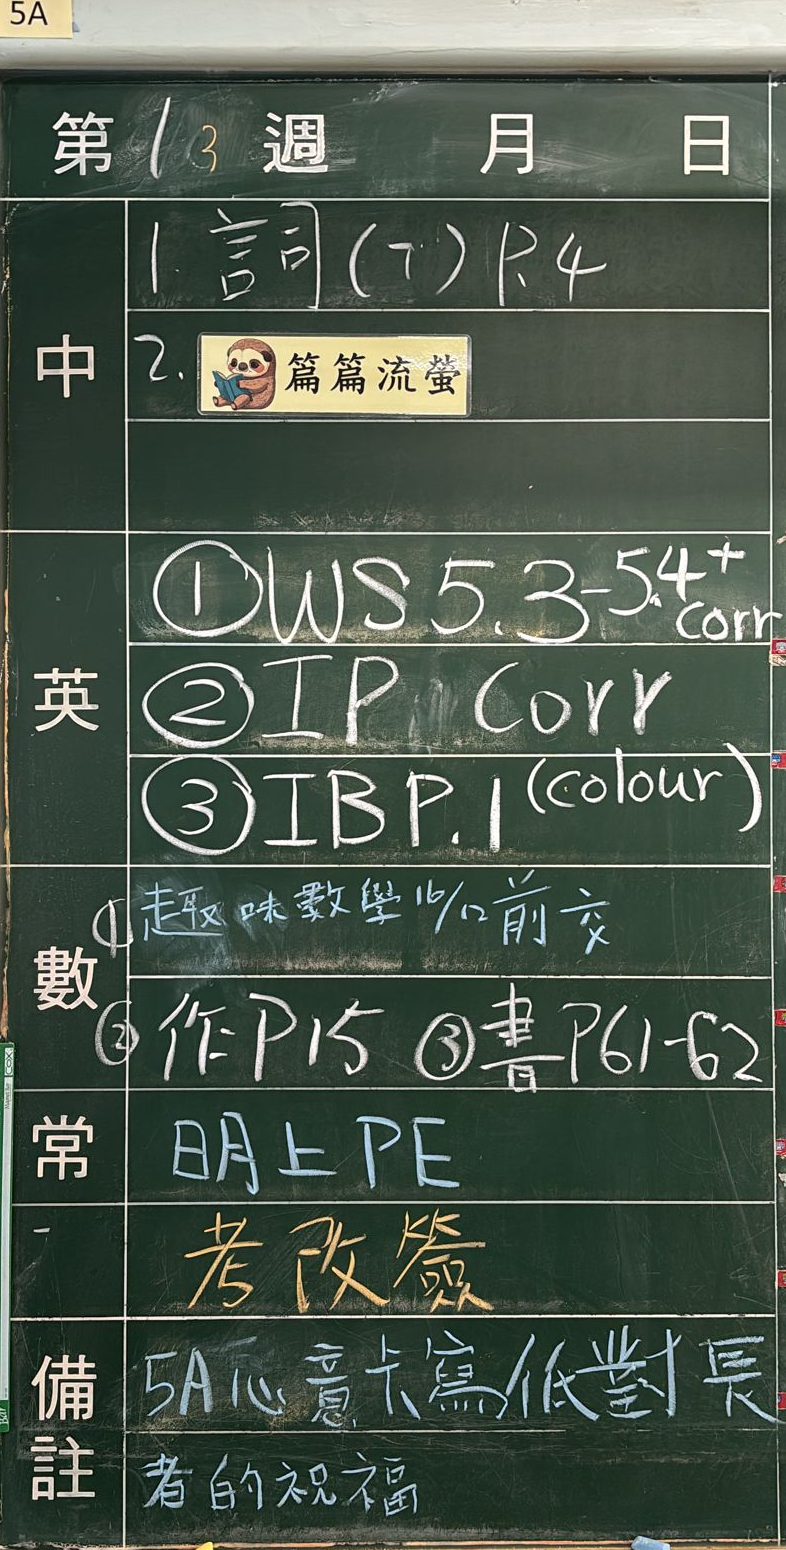 5A
第13週 月 日
中
1. 詞(T) P.4
2. 篇篇流螢
英
①WS 5.3-5.4+corr
②IP corr
③IB P.1 (colour)
數
①趣味數學16/12前交
②作P15 ③書P61-62
常
明上PE
考改簽
備註
5A心意卡寫低對長
者的祝福